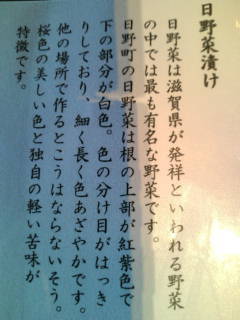 日野菜漬け
日野菜は滋賀県が発祥といわれる野菜
の中では最も有名な野菜です。
日野町の日野菜は根の上部が紅紫色で
下の部分が白色。色の分け目がはっき
りしており、細く長く色あざやかです。
他の場所で作るとこうはならないそう。
桜色の美しい色と独自の軽い苦味が
特徴です。